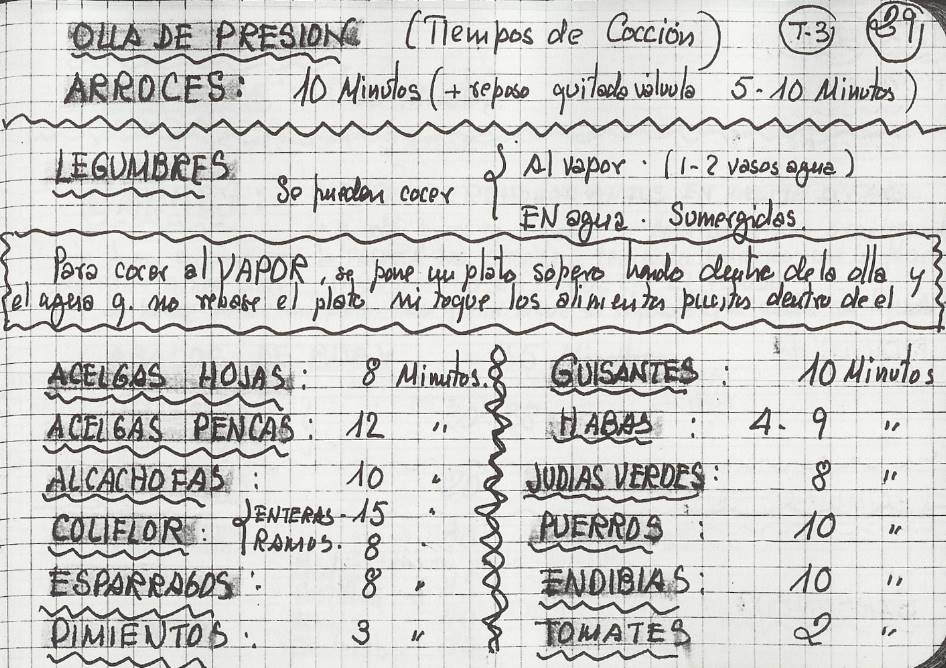 OLLA DE PRESION (Tiempos de Cocción) T-3 39
ARROCES: 10 Minutos (+ reposo quitada válvula 5-10 Minutos)
LEGUMBRES
Se pueden cocer
Al vapor. (1-2 vasos agua)
EN agua. Sumergidas.
Para cocer al VAPOR, se pone un plato sopero hondo dentro de la olla y
el agua q. no rebase el plato ni toque los alimentos puestos dentro de el
ACELGAS HOJAS: 8 Minutos.
ACELGAS PENCAS: 12 "
ALCACHOFAS: 10 "
COLIFLOR: ENTERAS - 15 "
RAMOS. 8 "
ESPARRAGOS: 8 "
PIMIENTOS: 3 "
GUISANTES: 10 Minutos
HABAS: 4-9 "
JUDIAS VERDES: 8 "
PUERROS: 10 "
ENDIBIAS: 10 "
TOMATES 2 "